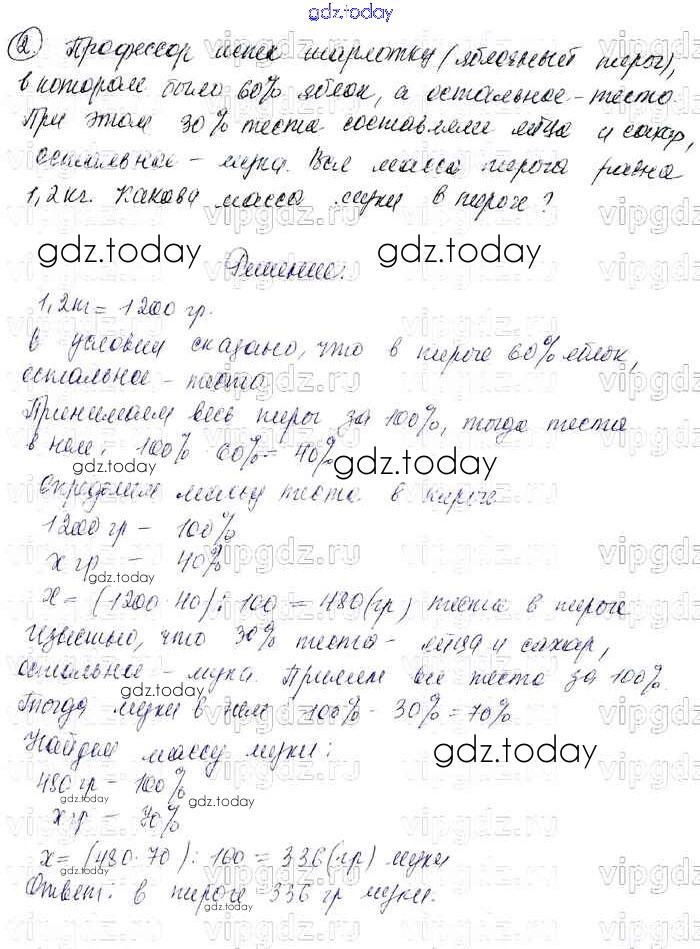 gdz.today
2. Профессор испек шарлотку (яблочный пирог),
в котором было 60% яблок, а остальное - тесто.
При этом 30% теста составляли яйца и сахар,
остальное - мука. Вся масса пирога равна
1,2 кг. Какова масса муки в пироге?
Решение:
1,2 кг = 1200 гр.
В условии сказано, что в пироге 60% яблок,
остальное - тесто
Принимаем весь пирог за 100%, тогда теста
в нем: 100% 60% = 40%
Определим массу теста в пироге
1200 гр - 100%
x гр - 40%
x = (1200 · 40) : 100 = 480 (гр) теста в пироге
Известно, что 30% теста - яйца и сахар,
остальное - мука. Примем всё тесто за 100%.
Тогда муки в нем 100% - 30% = 70%
Найдем массу муки:
480 гр - 100%
x гр - 70%
x = (480 · 70) : 100 = 336 (гр) муки
Ответ: в пироге 336 гр муки.